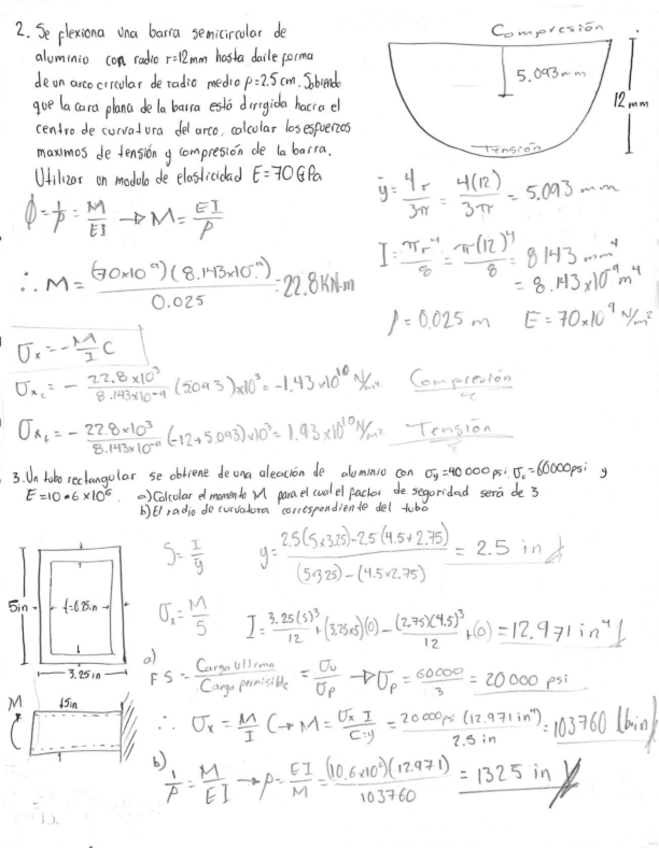 2. Se flexiona una barra semicircular de
aluminio con radio r=12mm hasta darle forma
de un arco circular de radio medio ρ=2.5cm. Sabiendo
que la cara plana de la barra está dirigida hacia el
centro de curvatura del arco, calcular los esfuerzos
maximos de tensión y compresión de la barra.
Utilizar un modulo de elasticidad E=70GPa
Compresión
5.093mm
12mm
Tensión
ȳ = 4r/3π = 4(12)/3π = 5.093 mm
I = πr⁴/8 = π(12)⁴/8 = 8143 mm⁴
= 8.143x10⁻⁹ m⁴
ρ = 0.025 m E = 70x10⁹ N/m²
ϕ = 1/ρ = M/EI → M = EI/ρ
∴ M = (70x10⁹)(8.143x10⁻⁹)/0.025 = 22.8KN·m
σx = - M/I C
σxc = - 22.8x10³/8.143x10⁻⁹ (5.093)x10³ = -1.43x10¹⁰ N/m² Compresión
σxt = - 22.8x10³/8.143x10⁻⁹ (-12+5.093)x10³ = 1.93x10¹⁰ N/m² Tensión
3. Un tubo rectangular se obtiene de una aleación de aluminio con σy=40 000 psi, σu=60000psi y
E=10.6x10⁶. a) Calcular el momento M para el cual el factor de seguridad será de 3
b) El radio de curvatura correspondiente del tubo
5in
t=0.25in
3.25in
M
15in
S = I/ȳ
y = 2.5(5x3.25)-2.5(4.5x2.75)/(5x3.25)-(4.5x2.75) = 2.5 in
σx = M/S
I = 3.25(5)³/12 + (3.25x5)(0) - (2.75)(4.5)³/12 + (0) = 12.971 in⁴
a)
FS = Carga Ultima/Carga permisible = σu/σp → σp = 60000/3 = 20000 psi
∴ σx = M/I C → M = σx I/C=y = 20000psi (12.971in⁴)/2.5 in = 103760 lb·in
b)
1/ρ = M/EI → ρ = EI/M = (10.6x10⁶)(12.971)/103760 = 1325 in